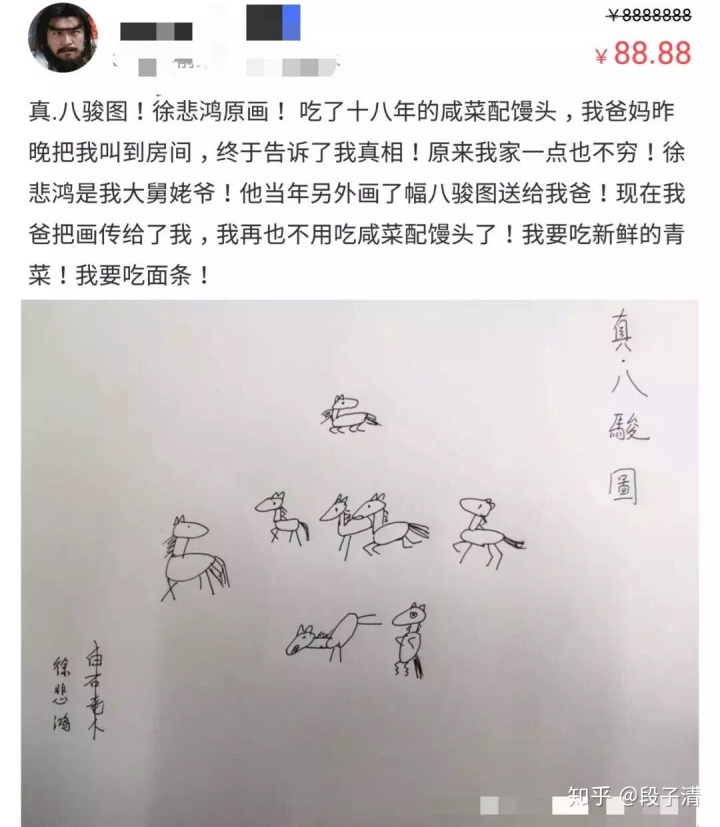 ¥8888888
¥88.88
真.八骏图！徐悲鸿原画！ 吃了十八年的咸菜配馒头，我爸妈昨
晚把我叫到房间，终于告诉了我真相！原来我家一点也不穷！徐
悲鸿是我大舅姥爷！他当年另外画了幅八骏图送给我爸！现在我
爸把画传给了我，我再也不用吃咸菜配馒头了！我要吃新鲜的青
菜！我要吃面条！
真·八駿圖
由石老人
徐悲鴻
知乎 @段子清